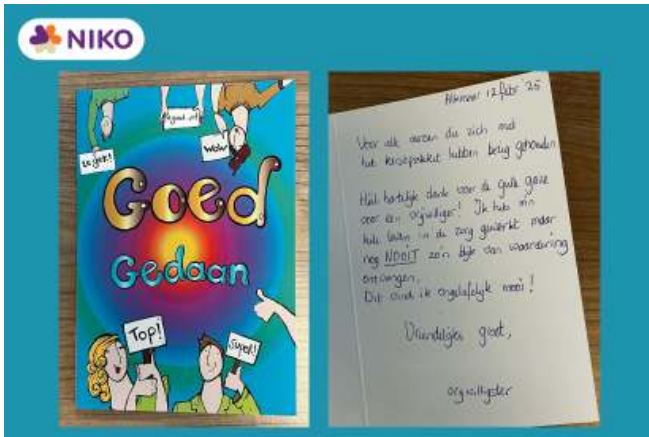 NIKO
Zo gek!
Wow
Goed
Gedaan
Top!
Super!
Alkmaar 12 febr '25
Voor alle mensen die zich met
het kerstpakket hebben bezig gehouden
Heel hartelijk dank voor de gulle gave
voor een vrijwilliger! Ik heb m'n
hele leven in de zorg gewerkt maar
nog NOOIT zo'n blijk van waardering
ontvangen.
Dit vind ik ongelofelijk mooi!
Vriendelijke groet,